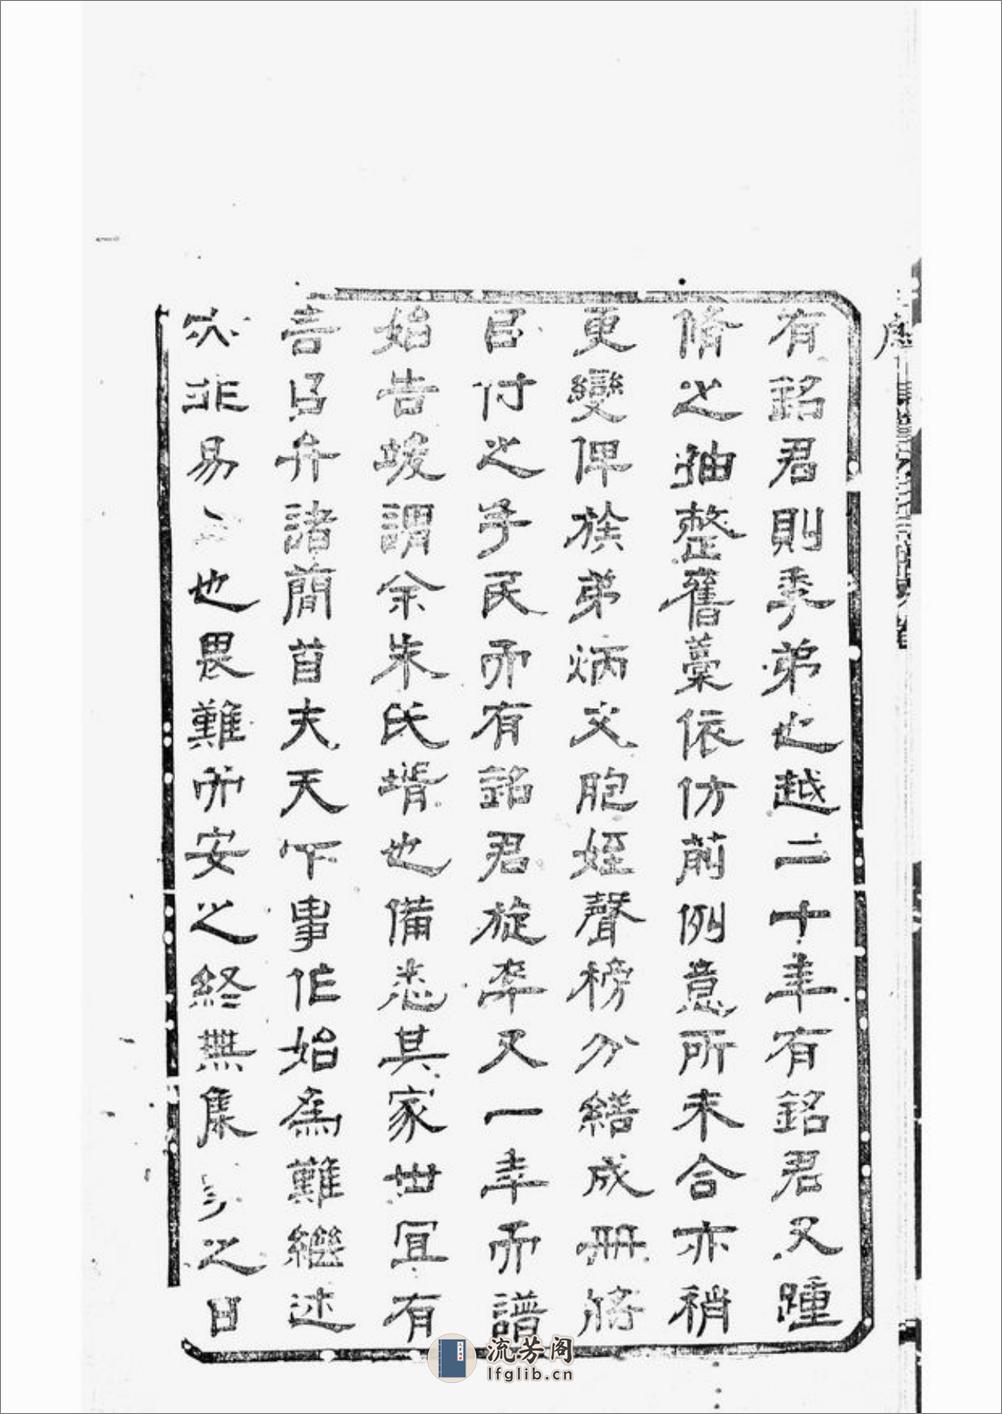 有銘君則季弟也越二十年有銘君又踵
脩之抽整舊藁依仿前例意所未合亦稍
更變俾族弟炳文胞姪聲榜分繕成冊將
㠯付之手民而有銘君旋卒又一年而譜
始告竣謂余朱氏壻也備悉其家世冝有
言㠯弁諸簡首夫天下事作始為難繼述
非易也畏難而安之終無集之日
序
流芳阁
lfglib.cn